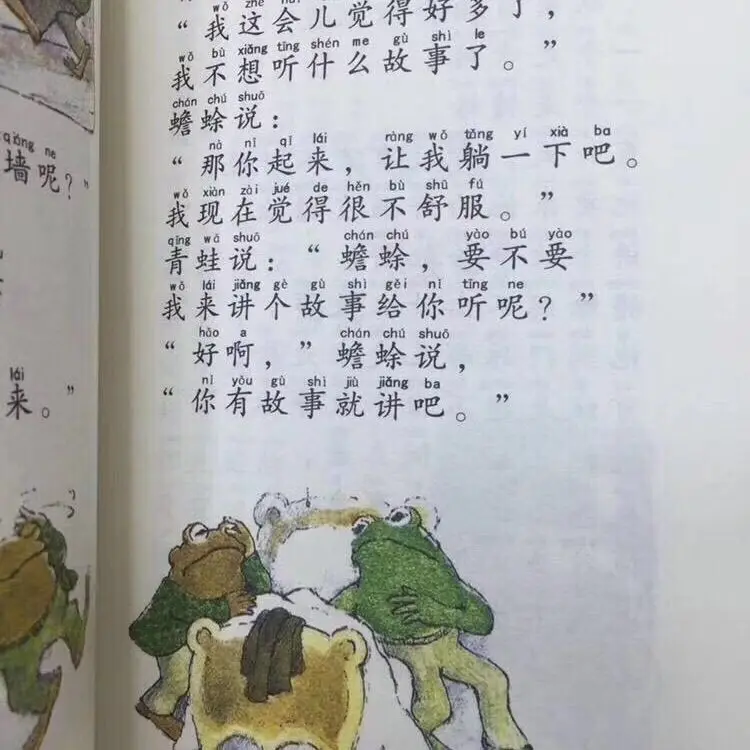 qiáng ne
墙呢？”
lái
来。”
“我这会儿觉得好多了，
wǒ bù xiǎng tīng shén me gù shì le
我不想听什么故事了。”
chán chú shuō
蟾蜍说：
nà nǐ qǐ lái ràng wǒ tǎng yí xià ba
“那你起来，让我躺一下吧。
wǒ xiàn zài jué de hěn bù shū fú
我现在觉得很不舒服。”
qīng wā shuō chán chú yào bú yào
青蛙说：“蟾蜍，要不要
wǒ lái jiǎng gè gù shì gěi nǐ tīng ne
我来讲个故事给你听呢？”
hǎo a chán chú shuō
“好啊，”蟾蜍说，
nǐ yǒu gù shì jiù jiǎng ba
“你有故事就讲吧。”